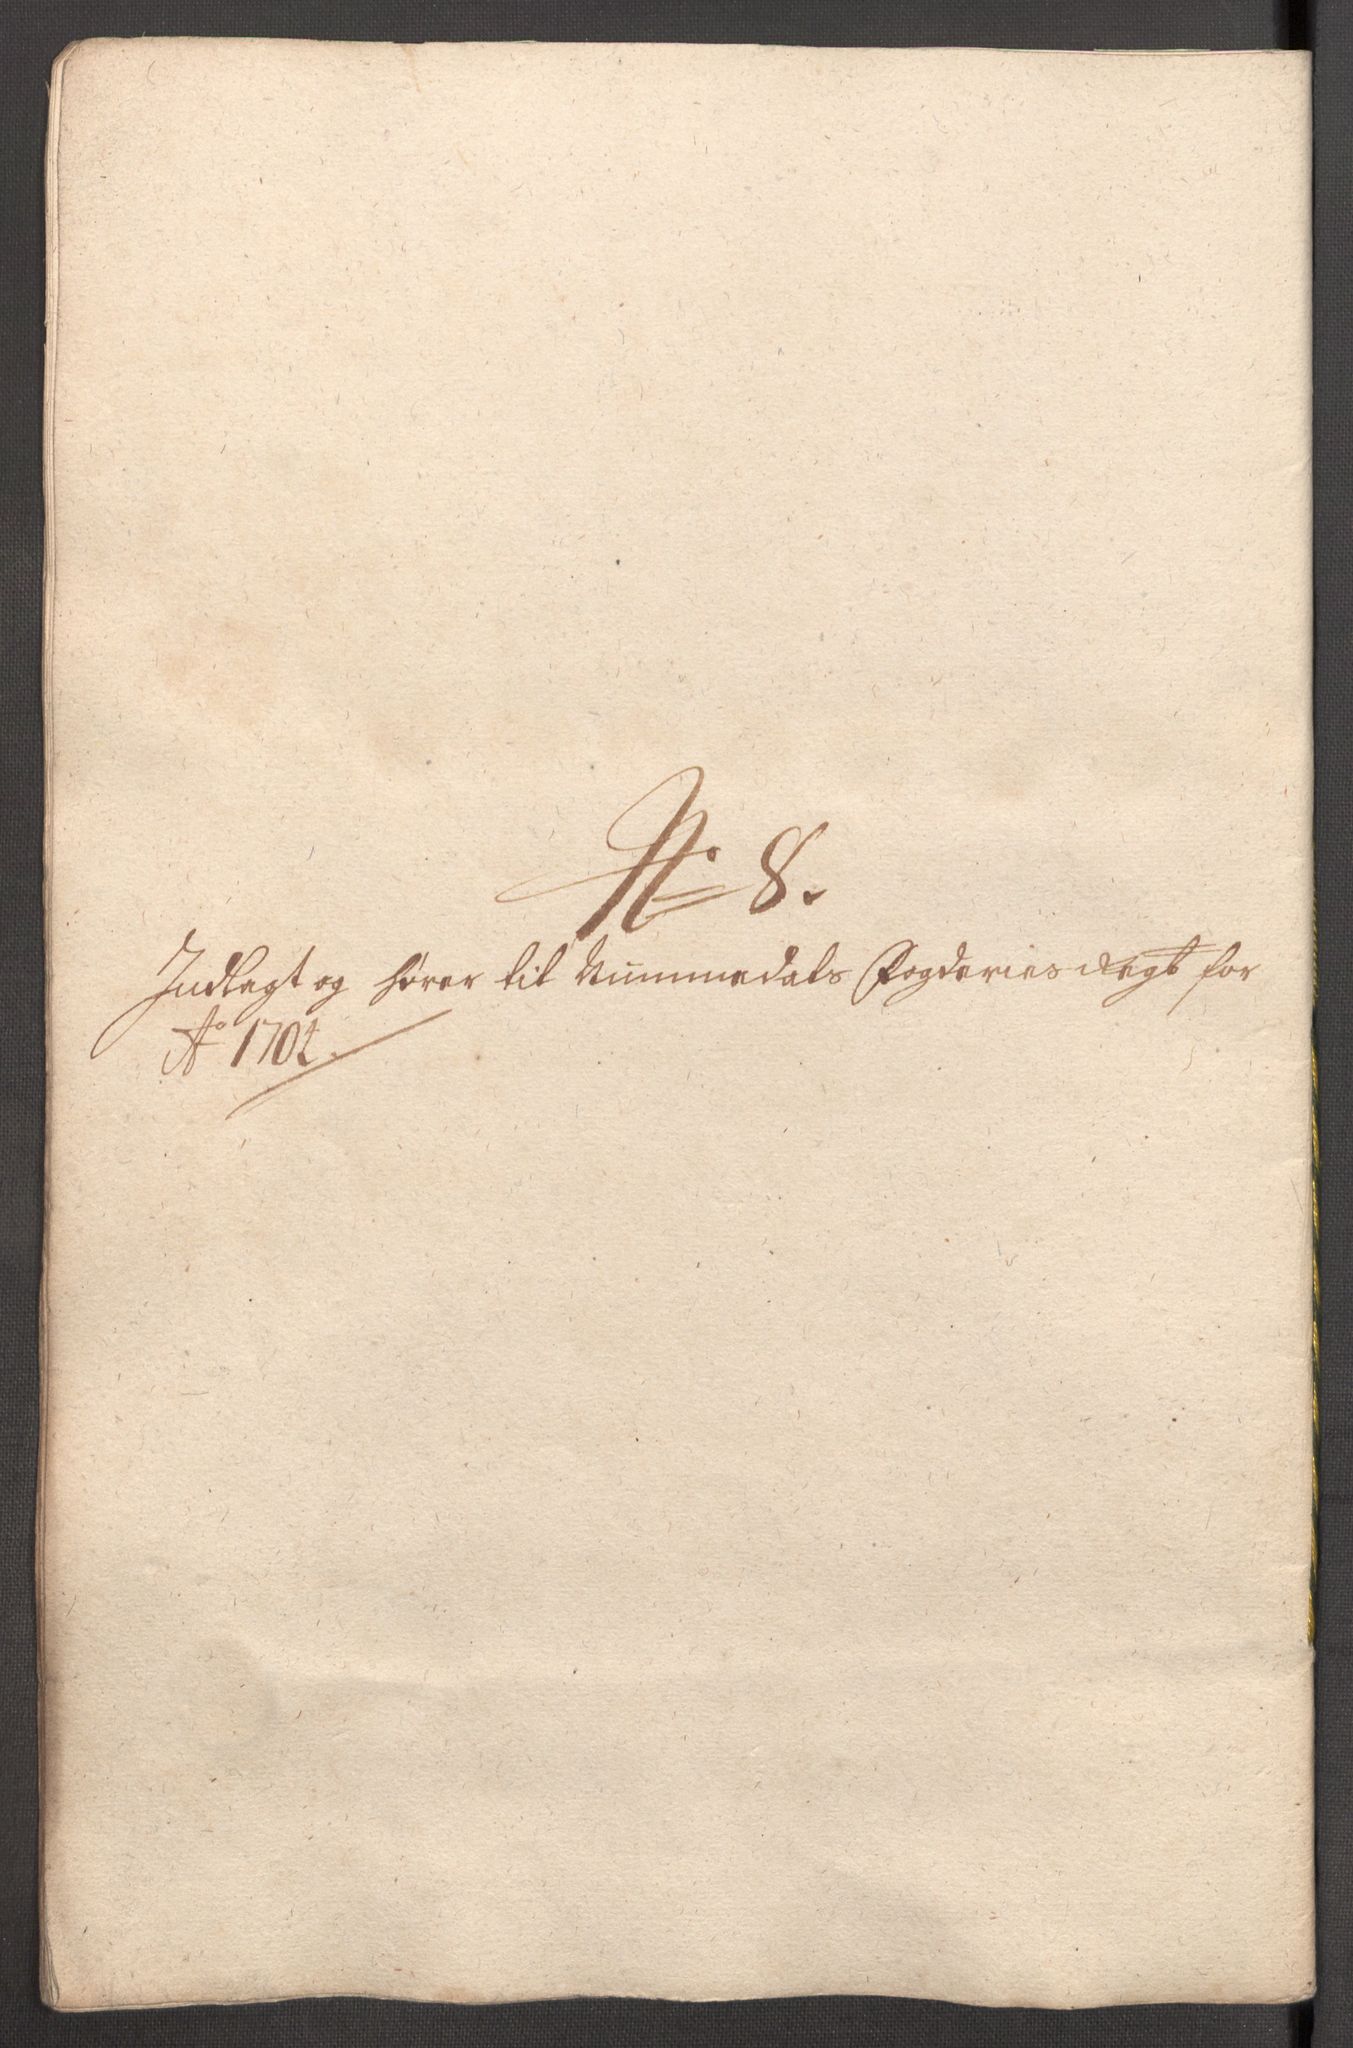 No 8.
Indlegt og hører til Nummedals Fogderies Regt for
Ao 1704.